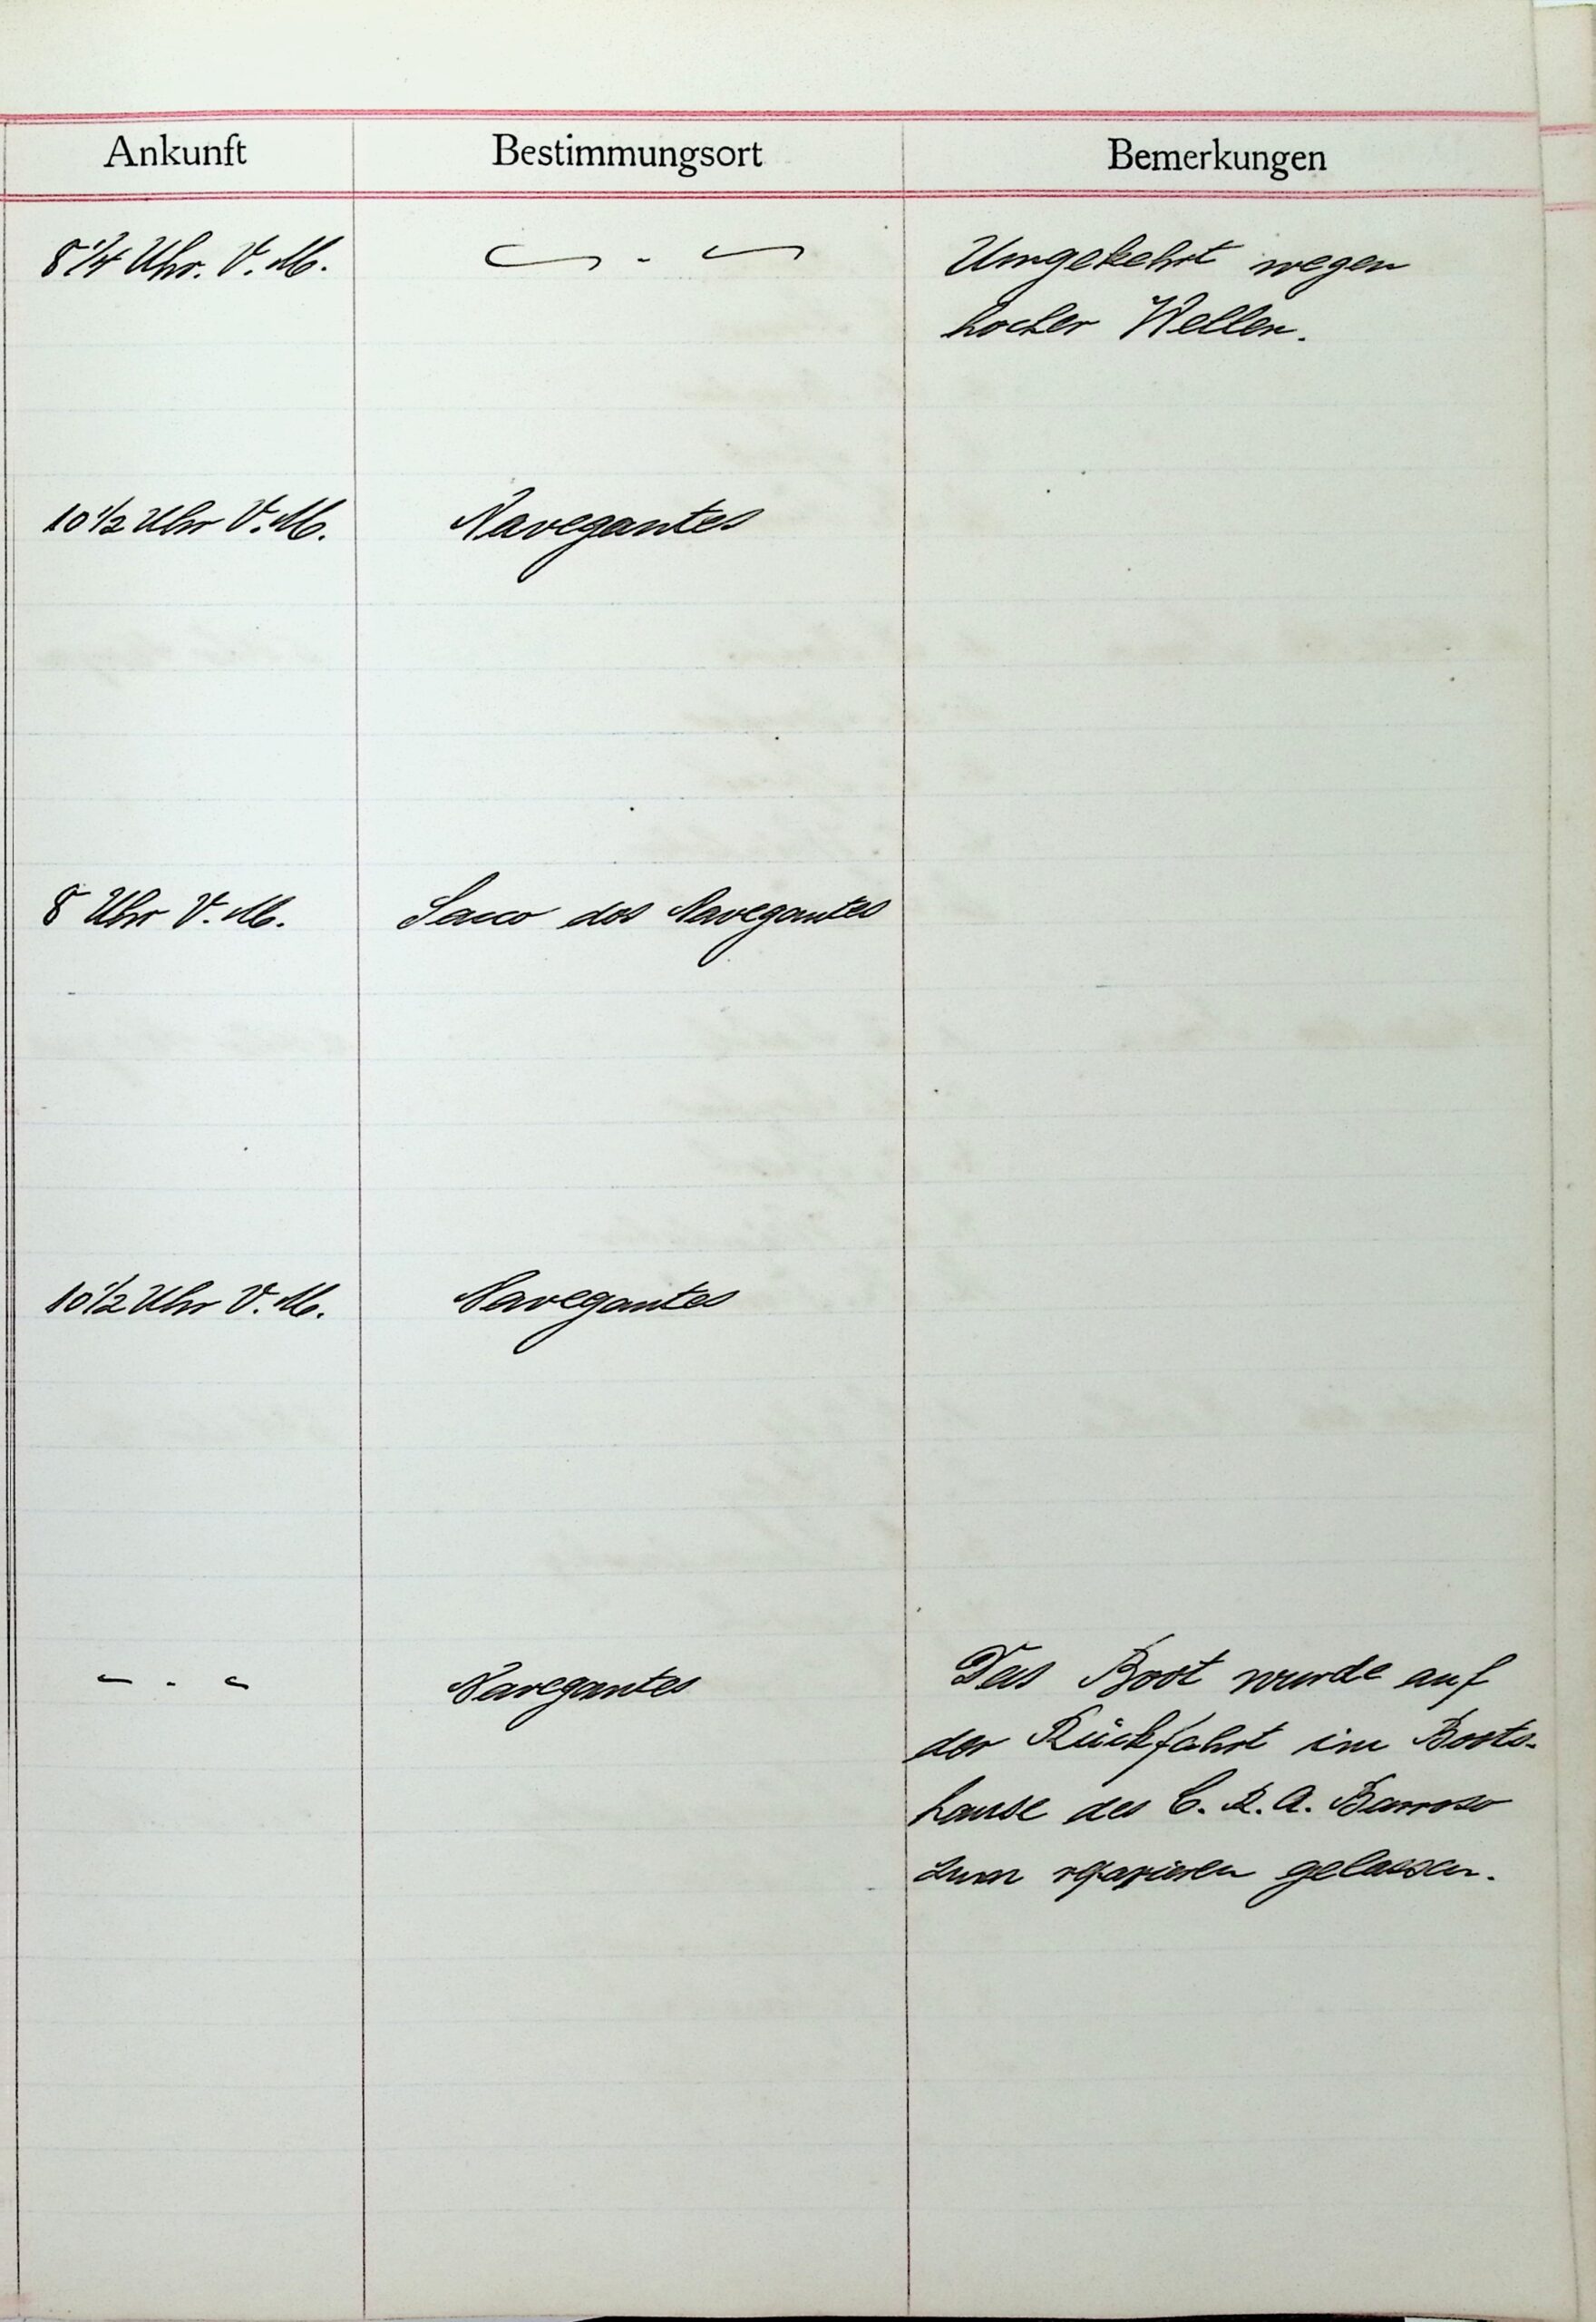 Ankunft Bestimmungsort Bemerkungen
8 1/4 Uhr. V. M. — . — Umgekehrt wegen
hocher Wellen.
10 1/2 Uhr V. M. Navegantes
8 Uhr V. M. Sacco dos Navegantes
10 1/2 Uhr V. M. Navegantes
- . - Navegantes Das Boot wurde auf
der Rückfahrt im Boots-
hause des C. R. A. Barroso
zum reparieren gelassen.